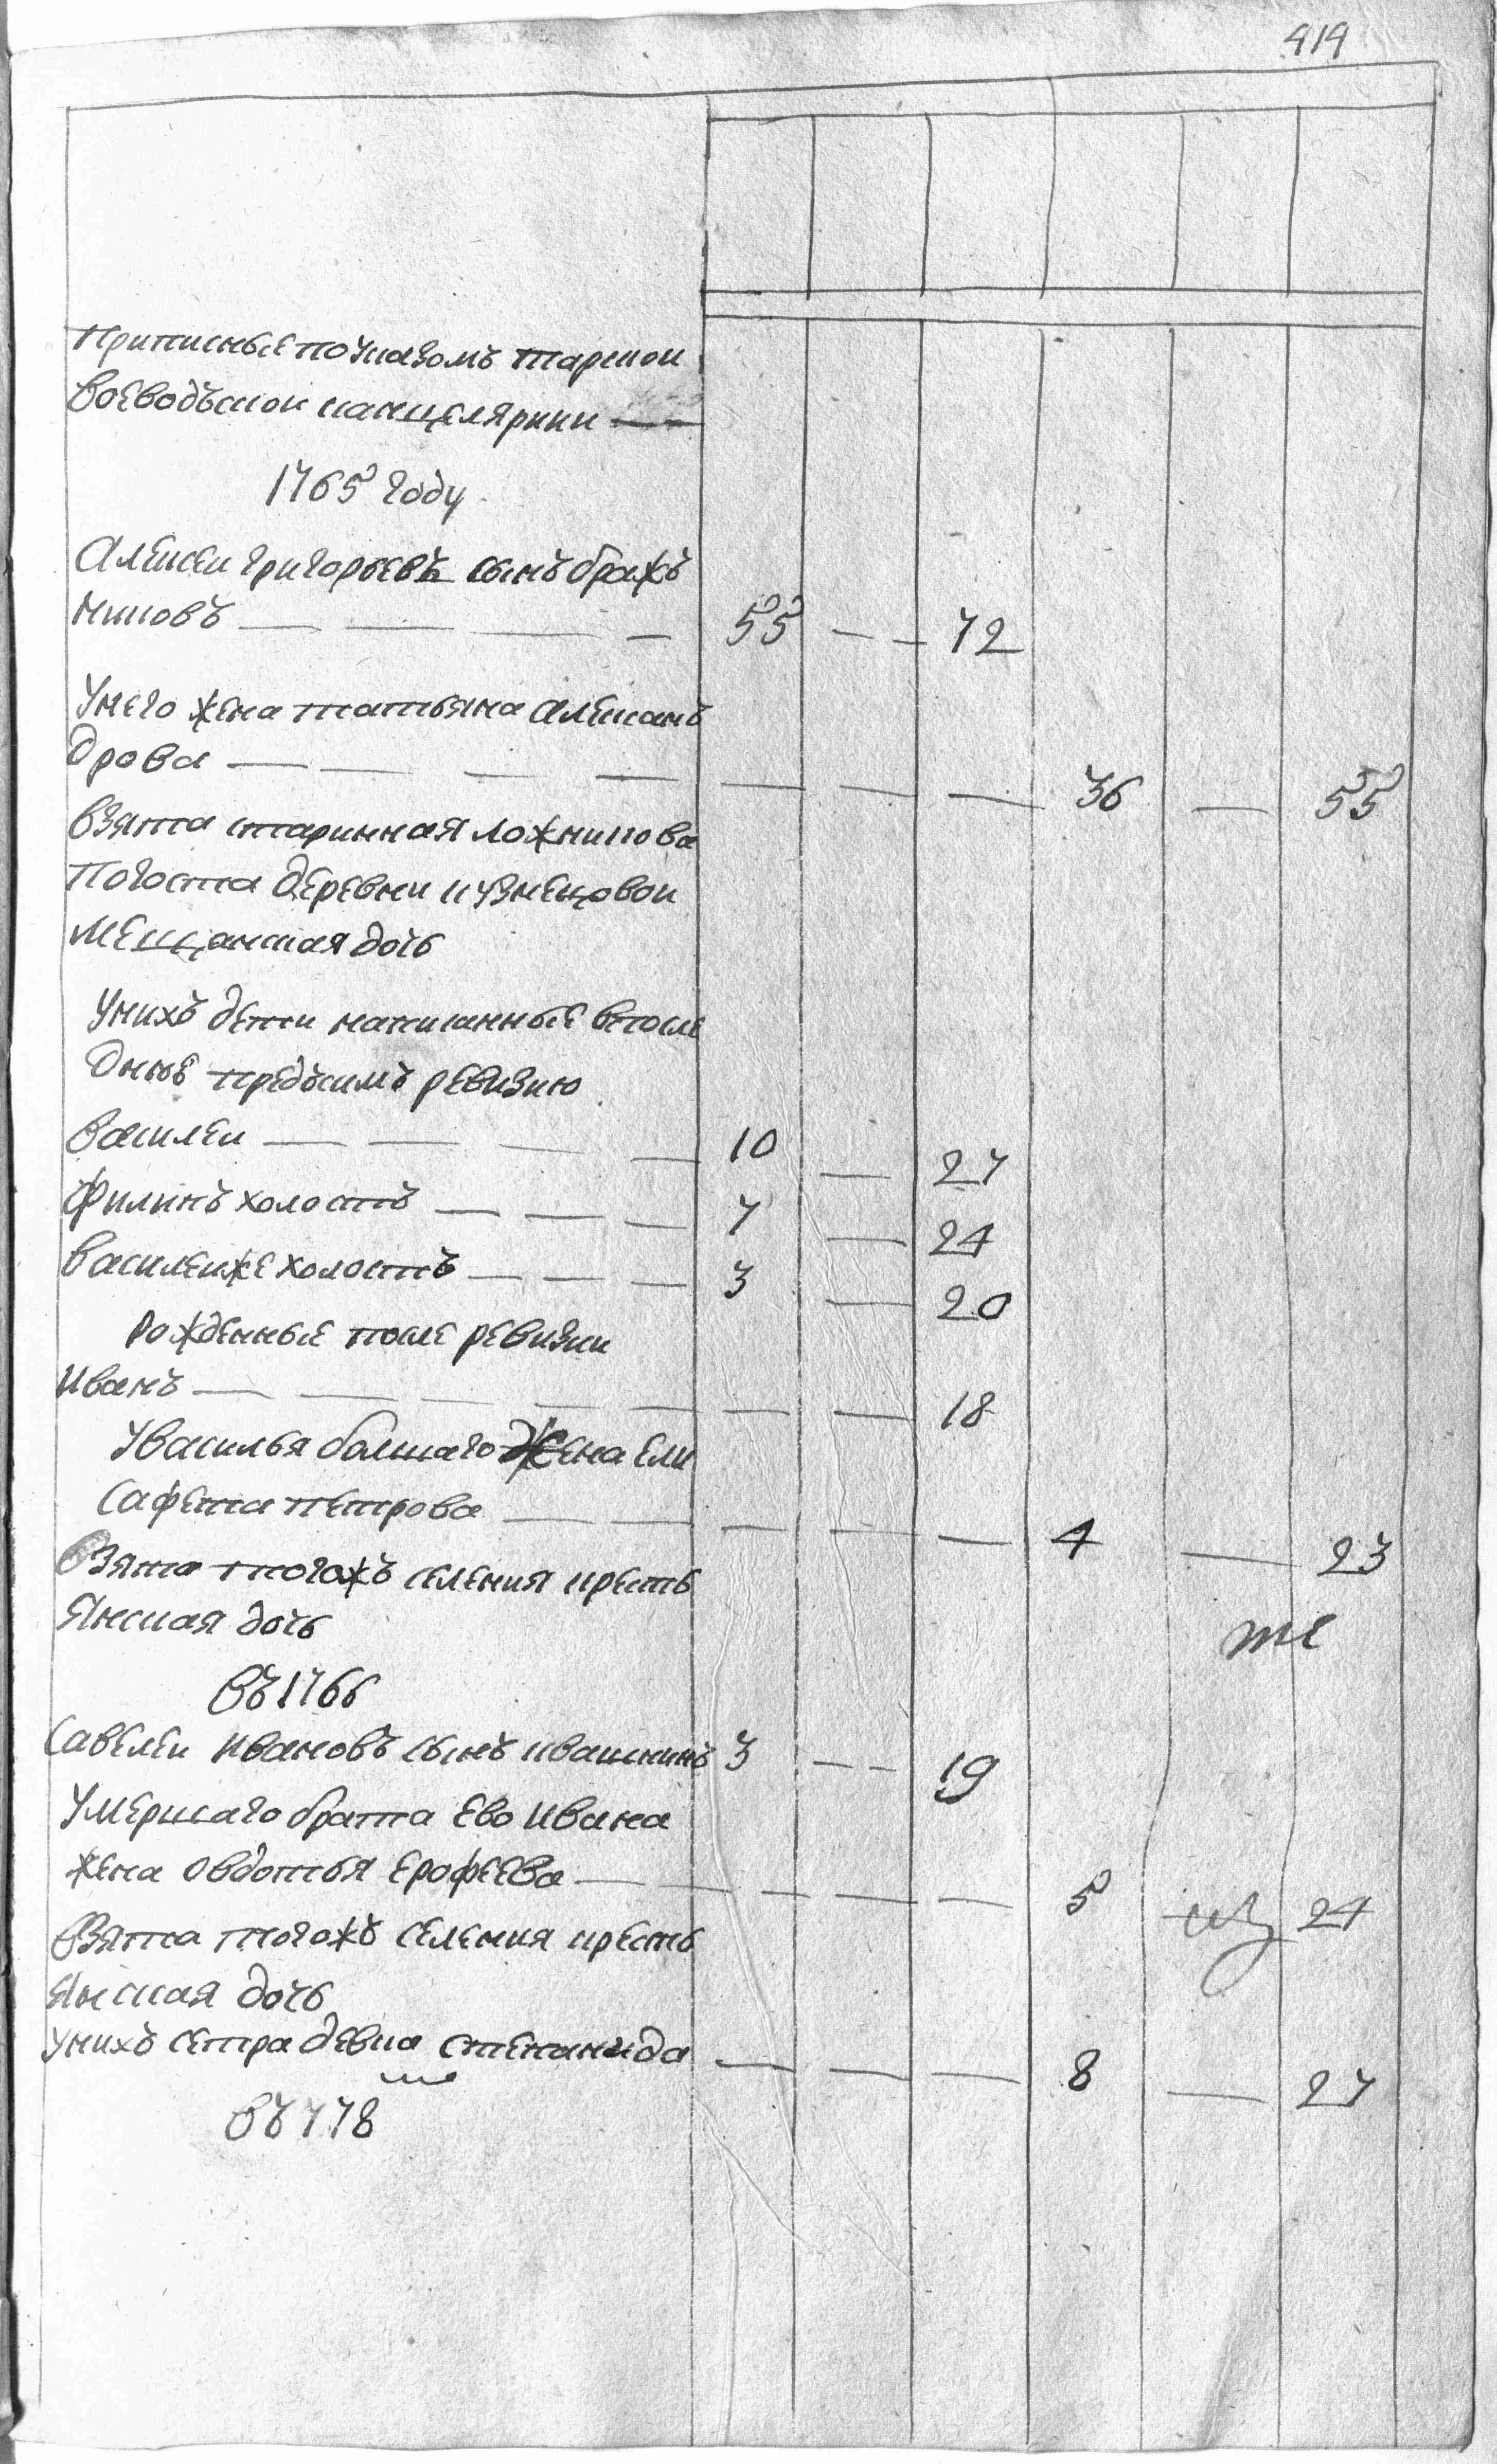 419
приписные поуказомъ тарской
воеводъской канцелярии —
1765 году
Алексеи григорьевъ сынъ бражъ
никовъ — — — — 55 — — 72
Унего жена татьяна алексанъ
дрова — — — — — — — 36 — 55
взята старинная ложникова
погоста деревни кузнецовой
мещанская дочь
Унихъ дети написанные впосле
днюю предъсимъ ревизию
Василеи — — — — 10 — 27
Филипъ холостъ — — — 7 — 24
Василеиже холостъ — — — 3 — 20
рожденные после ревизии
Иванъ — — — — — — — 18
Увасилья болшаго жена ели
сафета петрова — — — — — 4 — 23
Взята тогожъ селения кресть
янская дочь
те
Въ 1766
Савелеи Ивановъ сынъ ивашкинъ 3 — — 19
Умершаго брата ево Ивана
жена овдотья ерофеева — — — — — 5 из 24
Взята тогожъ селения кресть
янская дочь
унихъ сестра девка степанида — — — 8 — 27
Въ 778